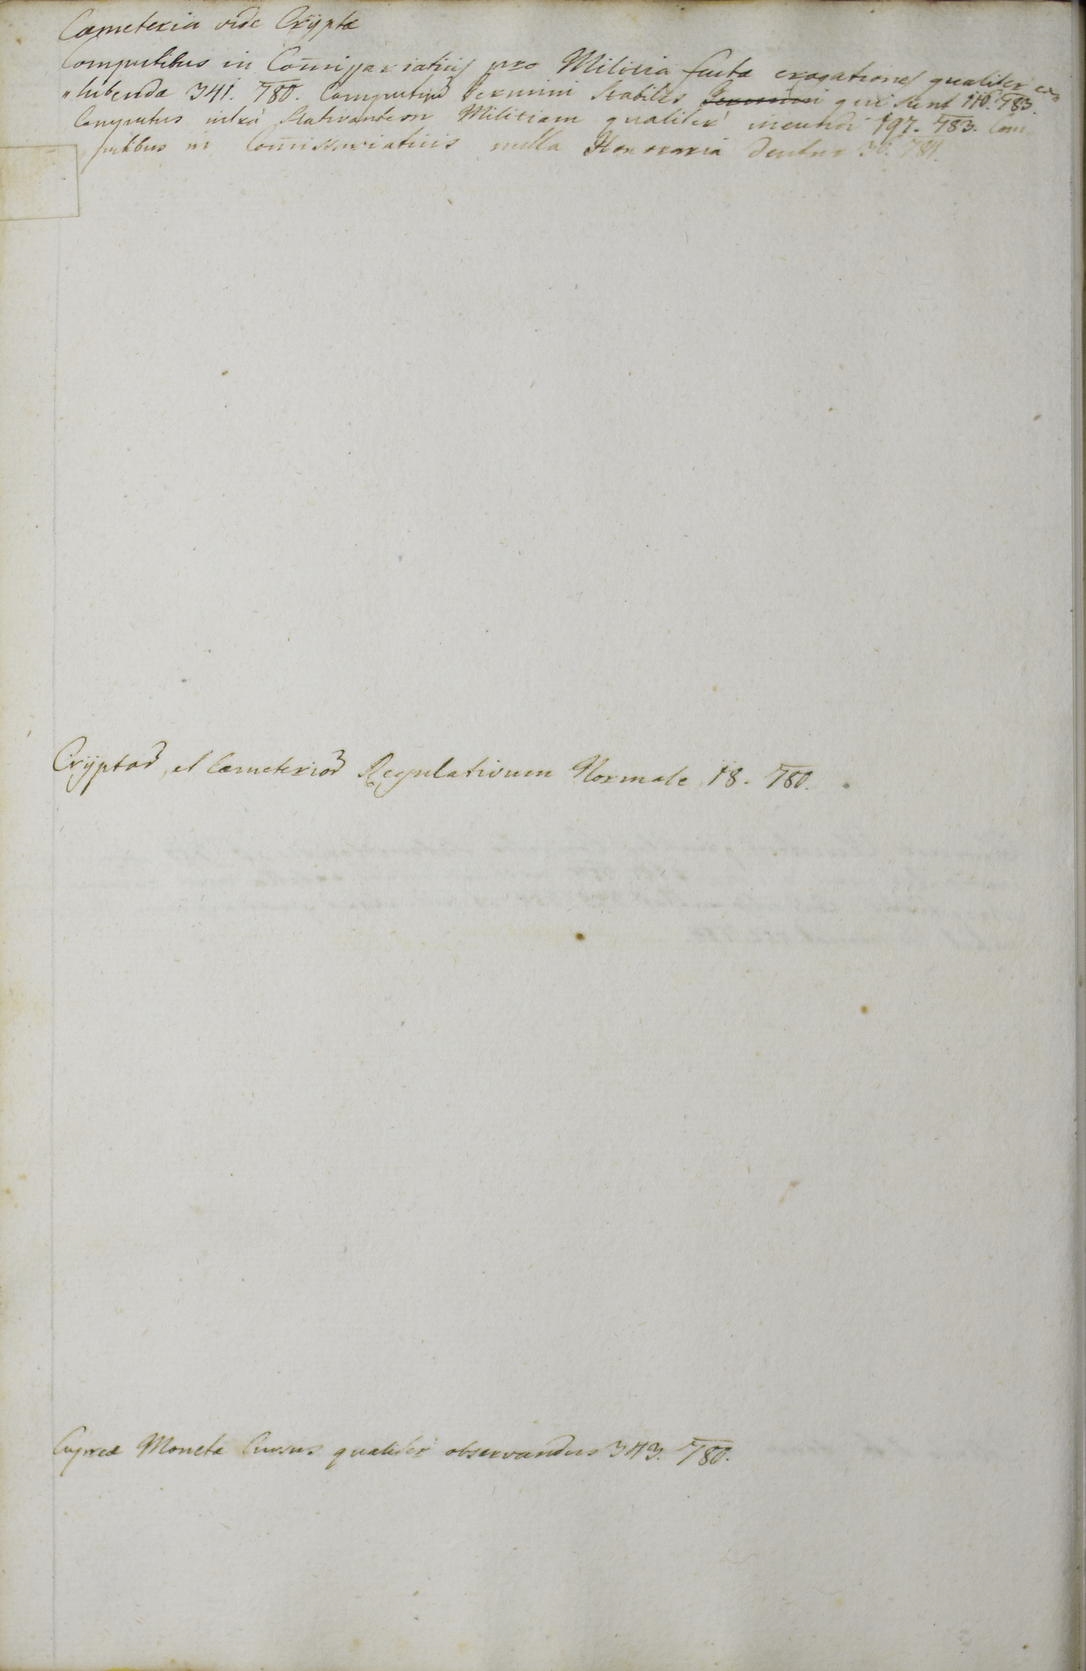 Cæmeteria vide Cryptæ
Computibus in Com̄issariaticis pro Militia facta erogationes qualiter ex¬
"hibenda 341. 780. Computus Termini stabiles qui sunt 110. 783.
Computus intra stativantem Militiam qualiter ineundi 197. 783. Com
putibus in Com̄issariaticis nulla Honoraria dentur 36. 784.
Cryptar, et Cæmeterior Regulativum Normale 18. 780.
Cupreæ Monetæ Cursus qualiter observandus 343. 780.